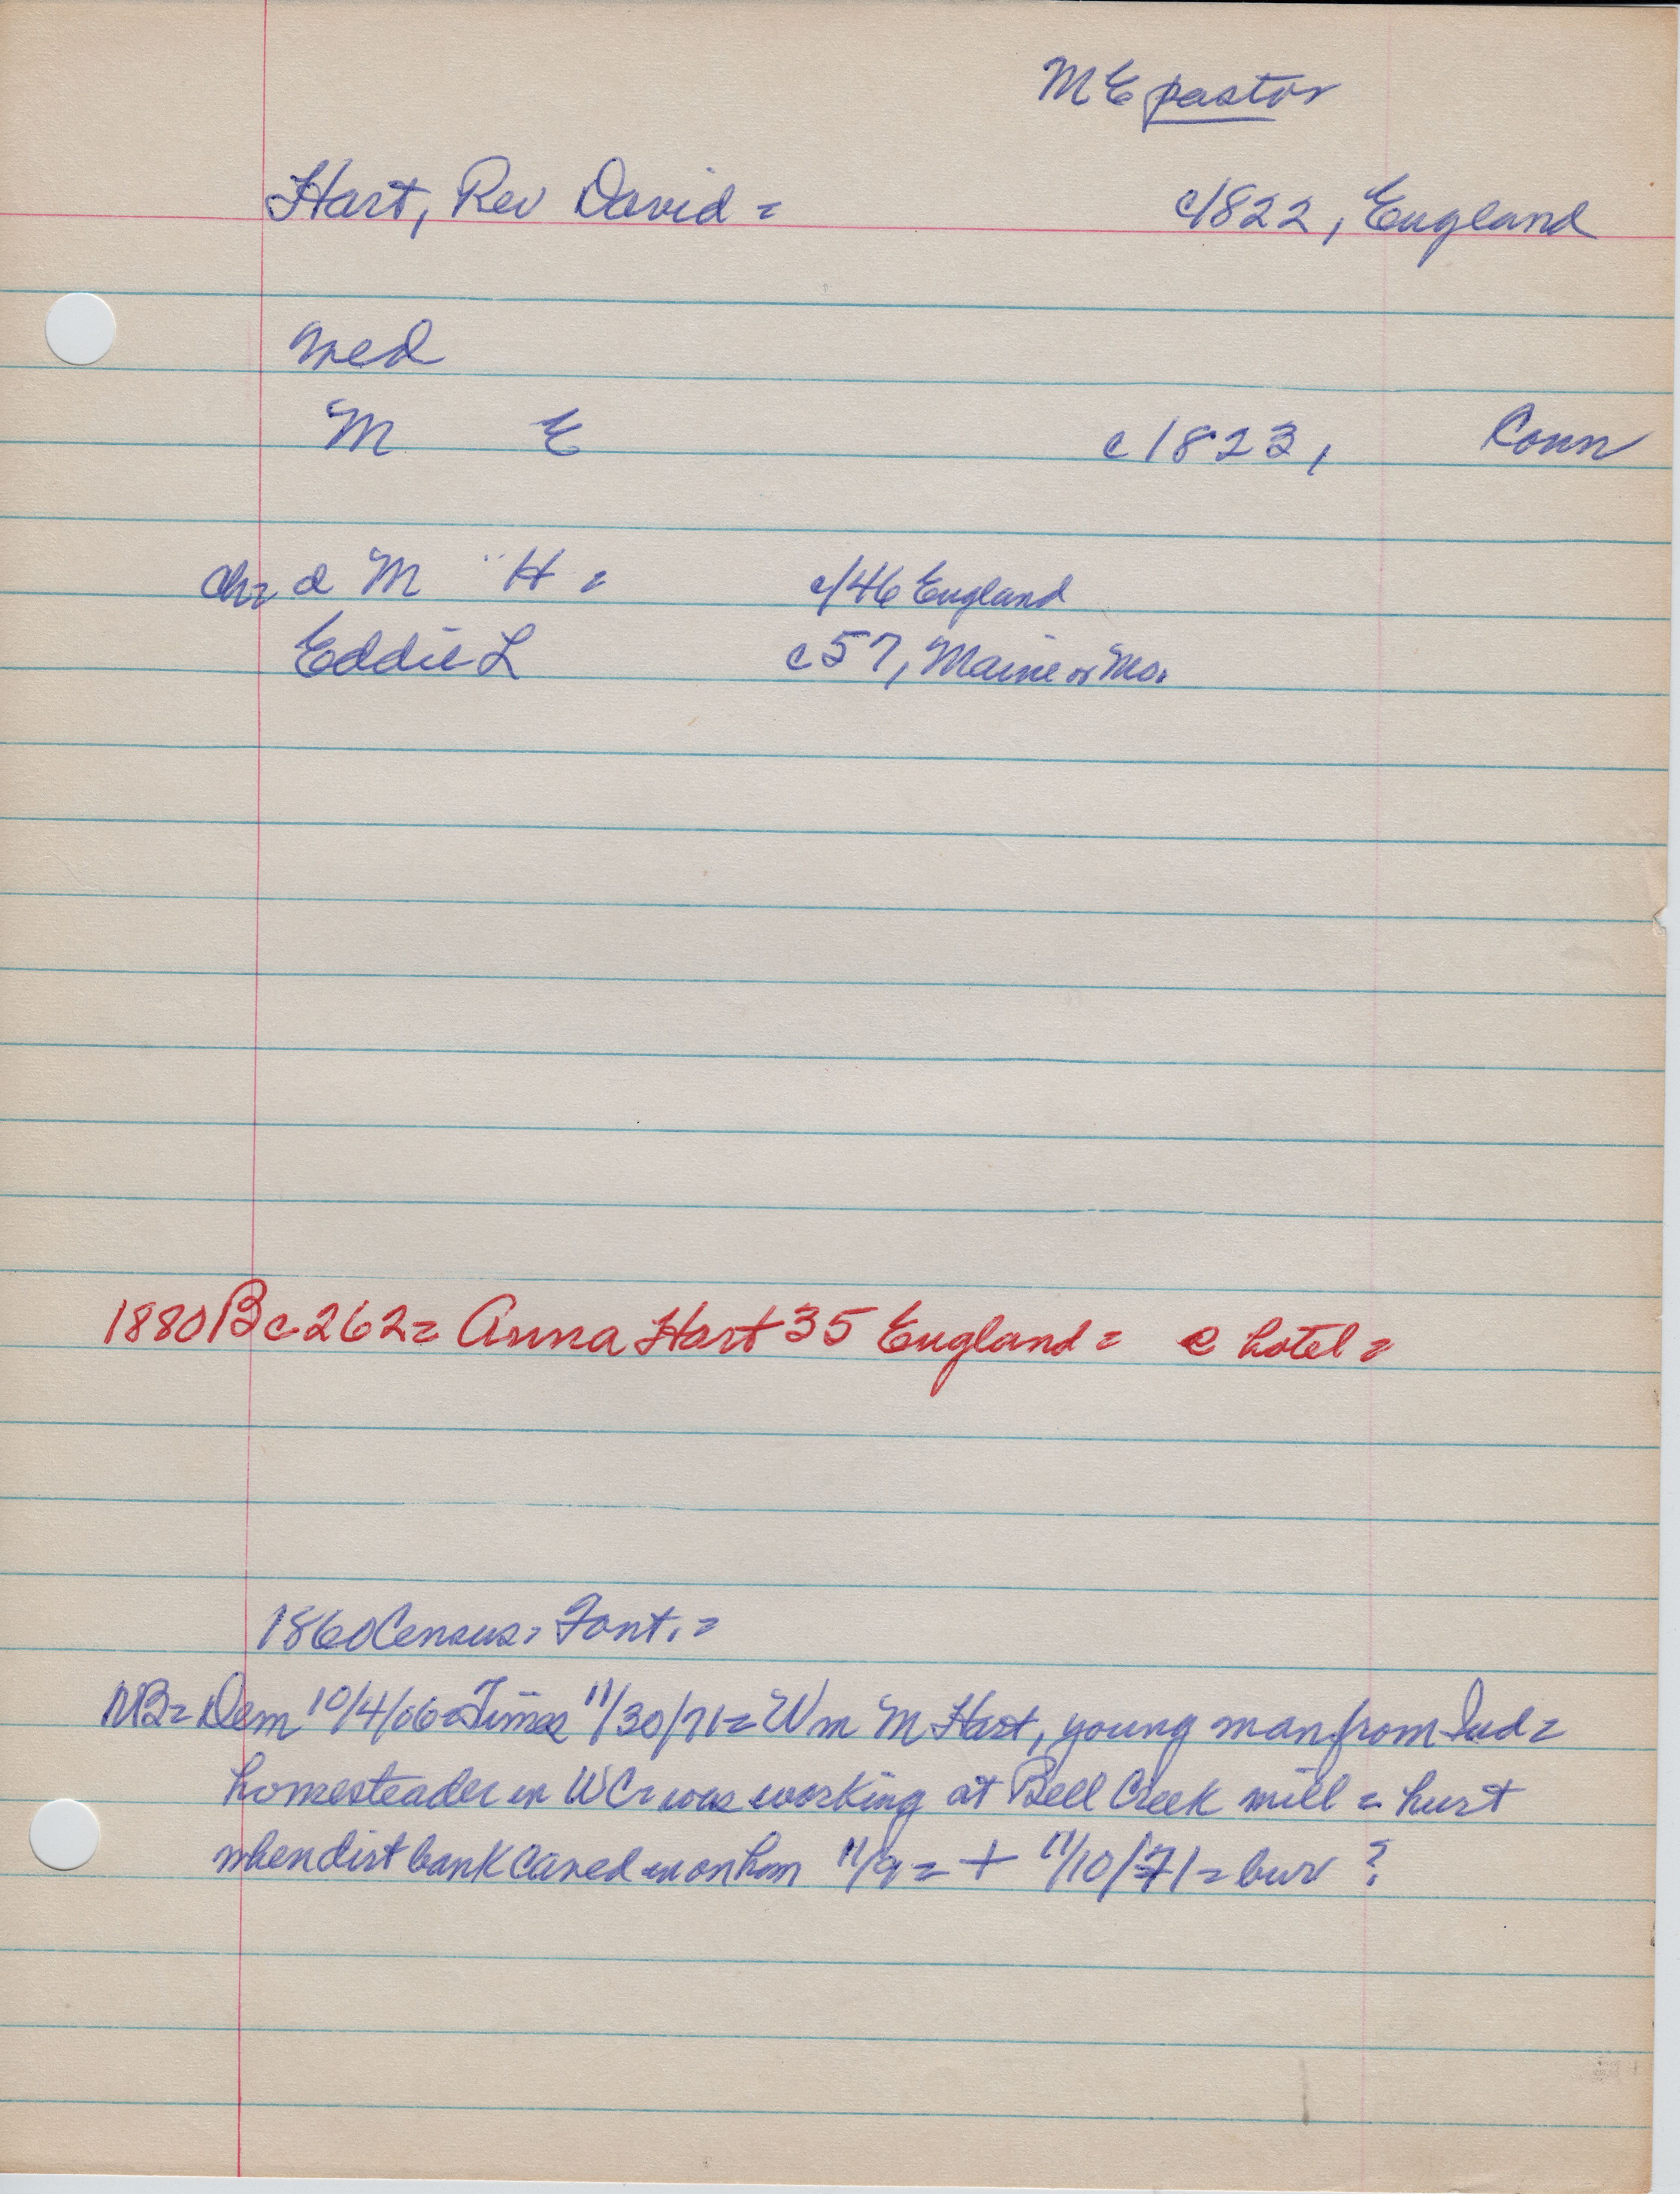 ME pastor
Hart, Rev David = c/822, England
med
M E c1823, Conn
ch= d M H = c/46 England
Eddie L c57, Maine or Mo.
1880 Bc 262= Anna Hart 35 England = @ hotel =
1860 Census = Font. =
NB= Dem 10/4/06= Times 11/30/71= Wm M Hart, young man from Ind=
homesteader in WC= was working at Bell Creek mill = hurt
when dirt bank caved in on him 11/9 = + 11/10/71= bur ?